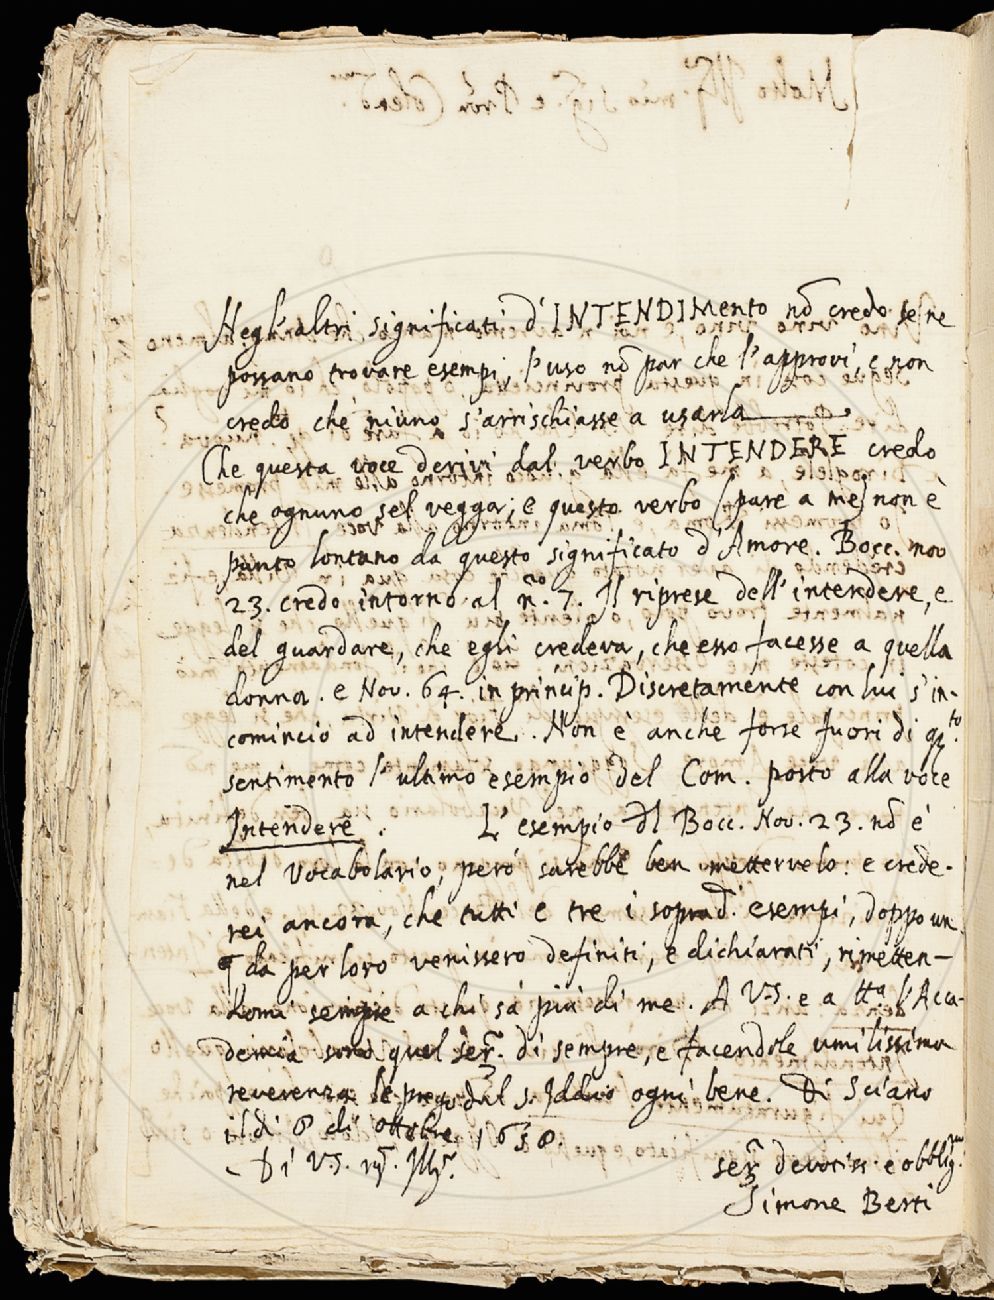 Negl'altri significati d'INTENDIMento nō credo se ne
possano trovare esempi, l'uso nō par che l'approvi, e non
credo che niuno s'arrischiasse a usarla
Che questa voce derivi dal verbo INTENDERE credo
che ognuno sel vegga; e questo verbo (pare a me) non è
punto lontano da questo significato d'Amore. Bocc. nov
23. credo intorno al n.º 7. Il riprese dell'intendere, e
del guardare, che egli credeva, che esso facesse a quella
donna. e Nov. 64. in princip. Discretamente con lui s'in-
cominciò ad intendere. Non è anche forse fuori di q.to
sentimento l'ultimo esempio del Com. posto alla voce
Intendere. L'esempio dl Bocc. Nov. 23. nō è
nel Vocabolario, però sarebbe ben mettervelo: e crede-
rei ancora, che tutti e tre i soprad. esempi, doppo un
da per loro venissero definiti, e dichiarati, rimetten-
domi sempre a chi sà più di me. A V.S. e a tta l'Acca-
demia sono quel ser. di sempre, e facendole umilissima
reverenza le prego dal s. Iddio ogni bene. Di Sciano
il dì 8 di ottobre 1658.
Di V.S. Ill.
ser. devotiss. e obblig.
Simone Berti